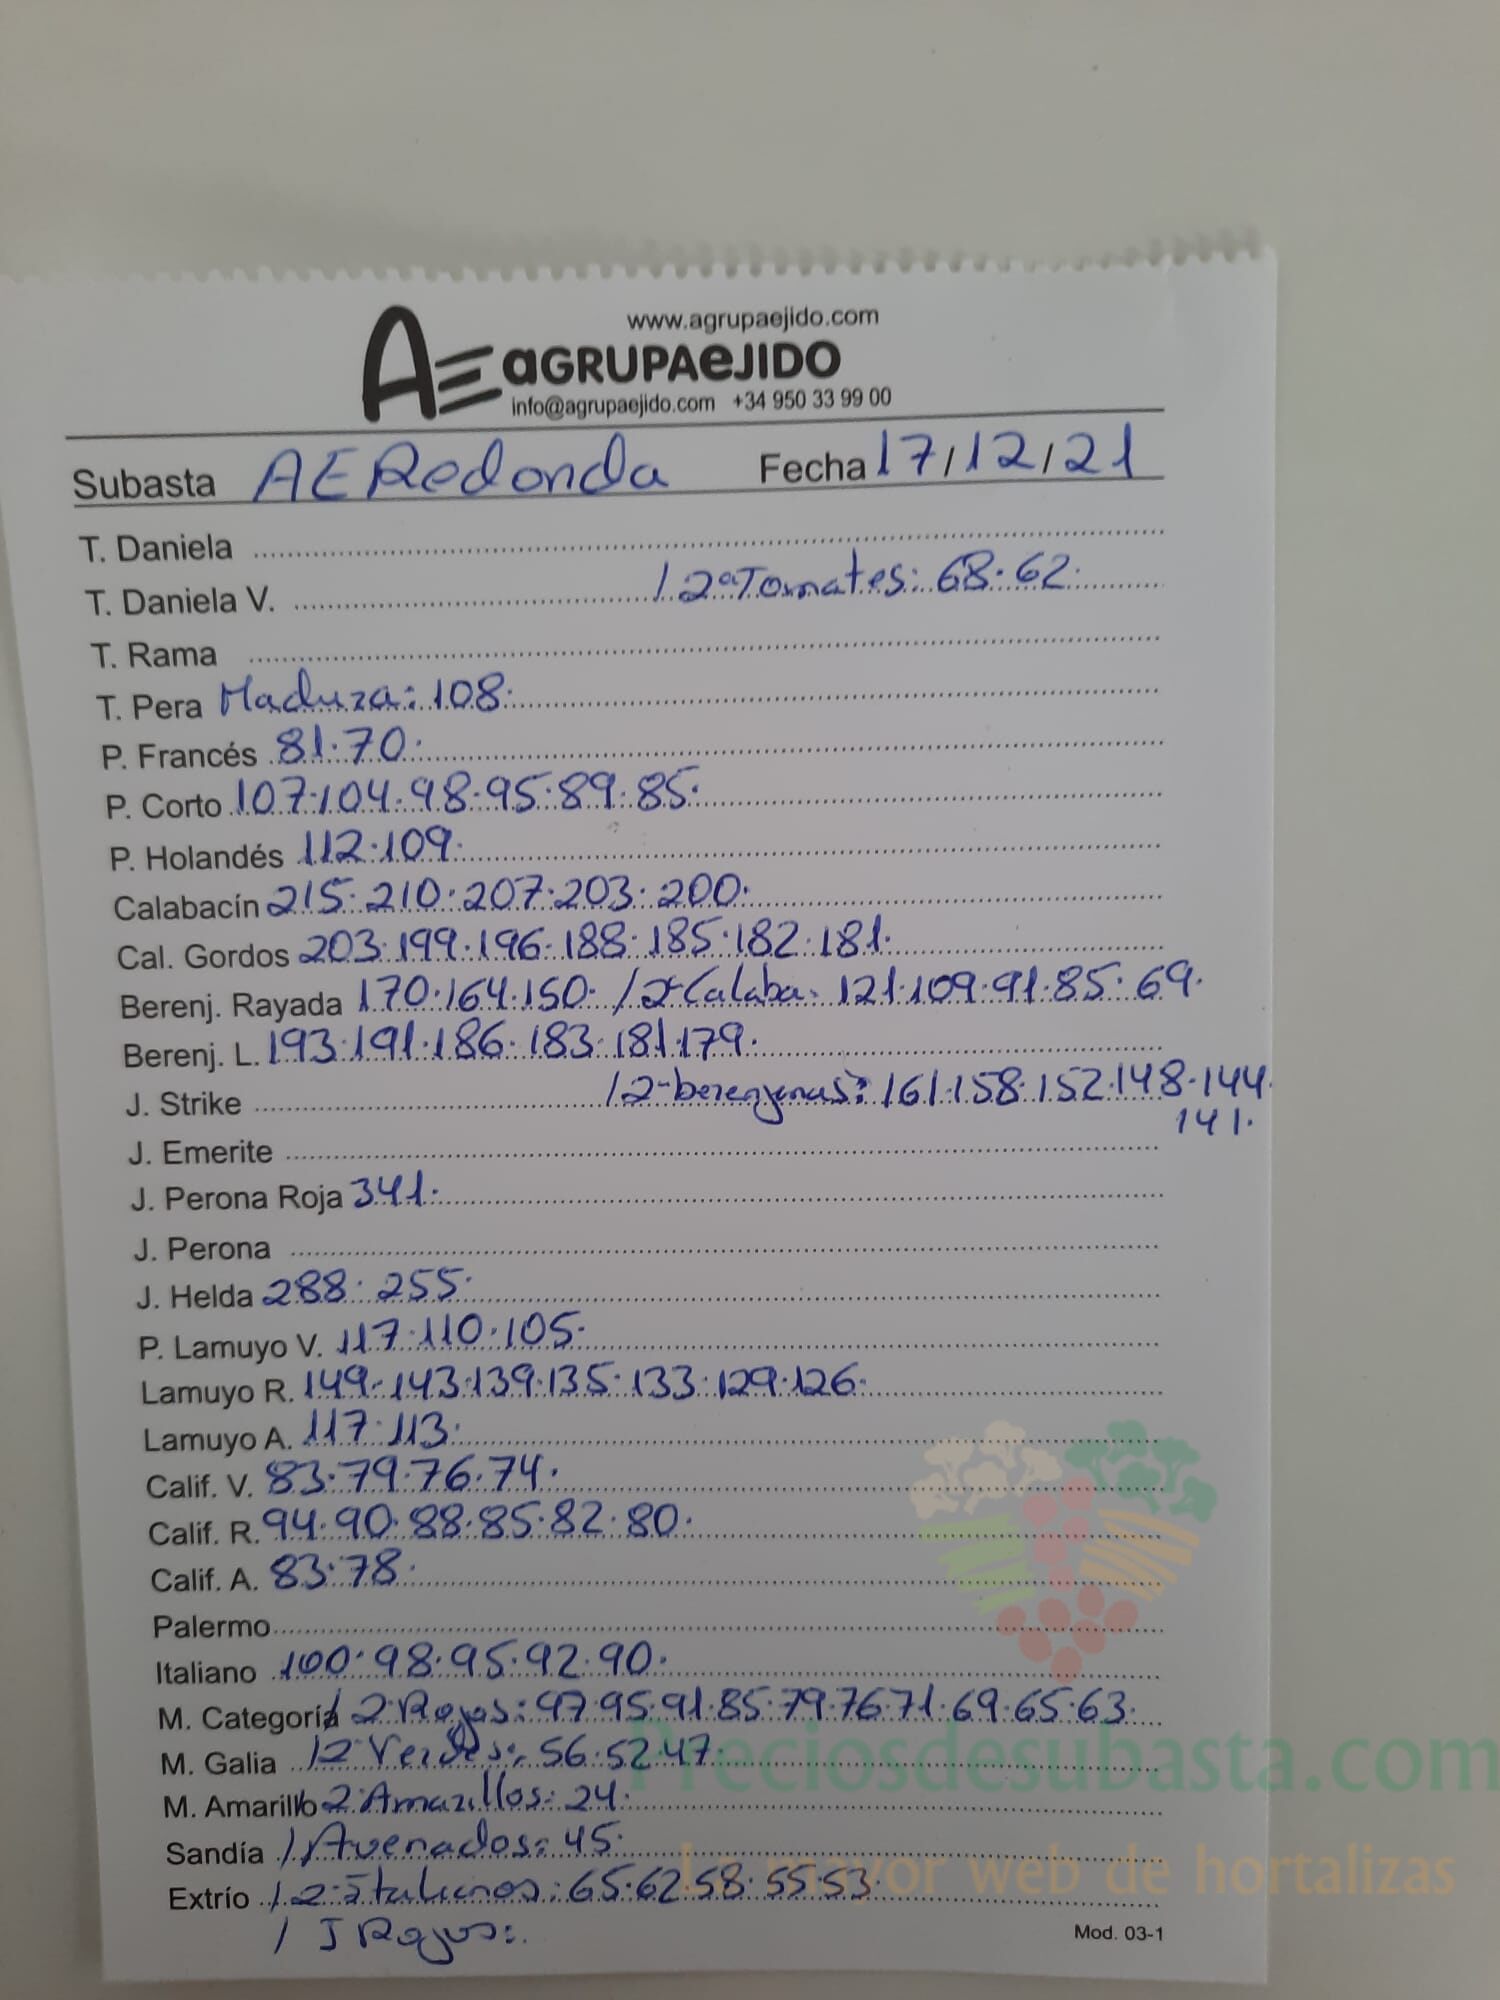 www.agrupaejido.com
AE aGRUPAeJIDO
info@agrupaejido.com +34 950 33 99 00
Subasta AERedonda Fecha 17/12/21
T. Daniela
T. Daniela V. / 2ª Tomates: 68. 62.
T. Rama
T. Pera Maduza: 108.
P. Francés 81. 70.
P. Corto 107. 104. 98. 95. 89. 85.
P. Holandés 112. 109.
Calabacín 215. 210. 207. 203. 200.
Cal. Gordos 203. 199. 196. 188. 185. 182. 181.
Berenj. Rayada 170. 164. 150. / 2ª Calaba. 121. 109. 91. 85. 69.
Berenj. L. 193. 191. 186. 183. 181. 179.
J. Strike / 2ª berenjenas: 161. 158. 152. 148. 144.
141.
J. Emerite
J. Perona Roja 341.
J. Perona
J. Helda 288. 255.
P. Lamuyo V. 117. 110. 105.
Lamuyo R. 149. 143. 139. 135. 133. 129. 126.
Lamuyo A. 117. 113.
Calif. V. 83. 79. 76. 74.
Calif. R. 94. 90. 88. 85. 82. 80.
Calif. A. 83. 78.
Palermo
Italiano 100. 98. 95. 92. 90.
M. Categoría / 2ª Rojos: 97. 95. 91. 85. 79. 76. 71. 69. 65. 63.
M. Galia / 2ª Verdes: 56. 52. 47.
M. Amarillo / 2ª Amarillos: 24.
Sandía / Avenados: 45.
Extrío / 2ª Italianos: 65. 62. 58. 55. 53
/ J Rojos:
Mod. 03-1
Preciosdesubasta.com
La mayor web de hortalizas